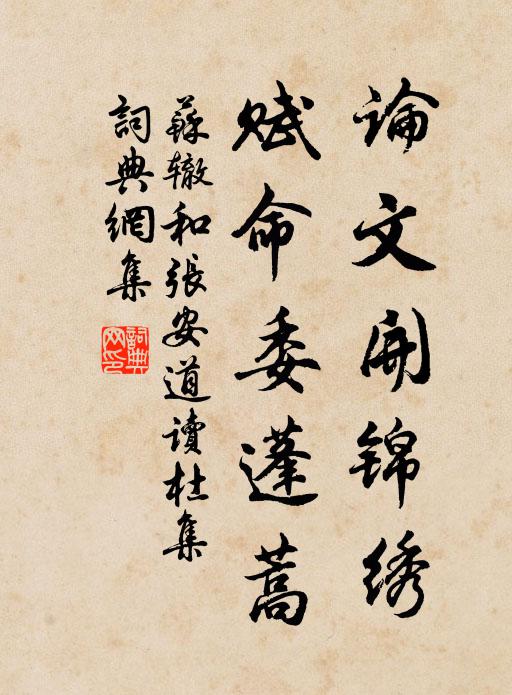 论文开锦绣
赋命委蓬蒿
蘇辙和張安道讀杜集
詞典網集
詞典網印